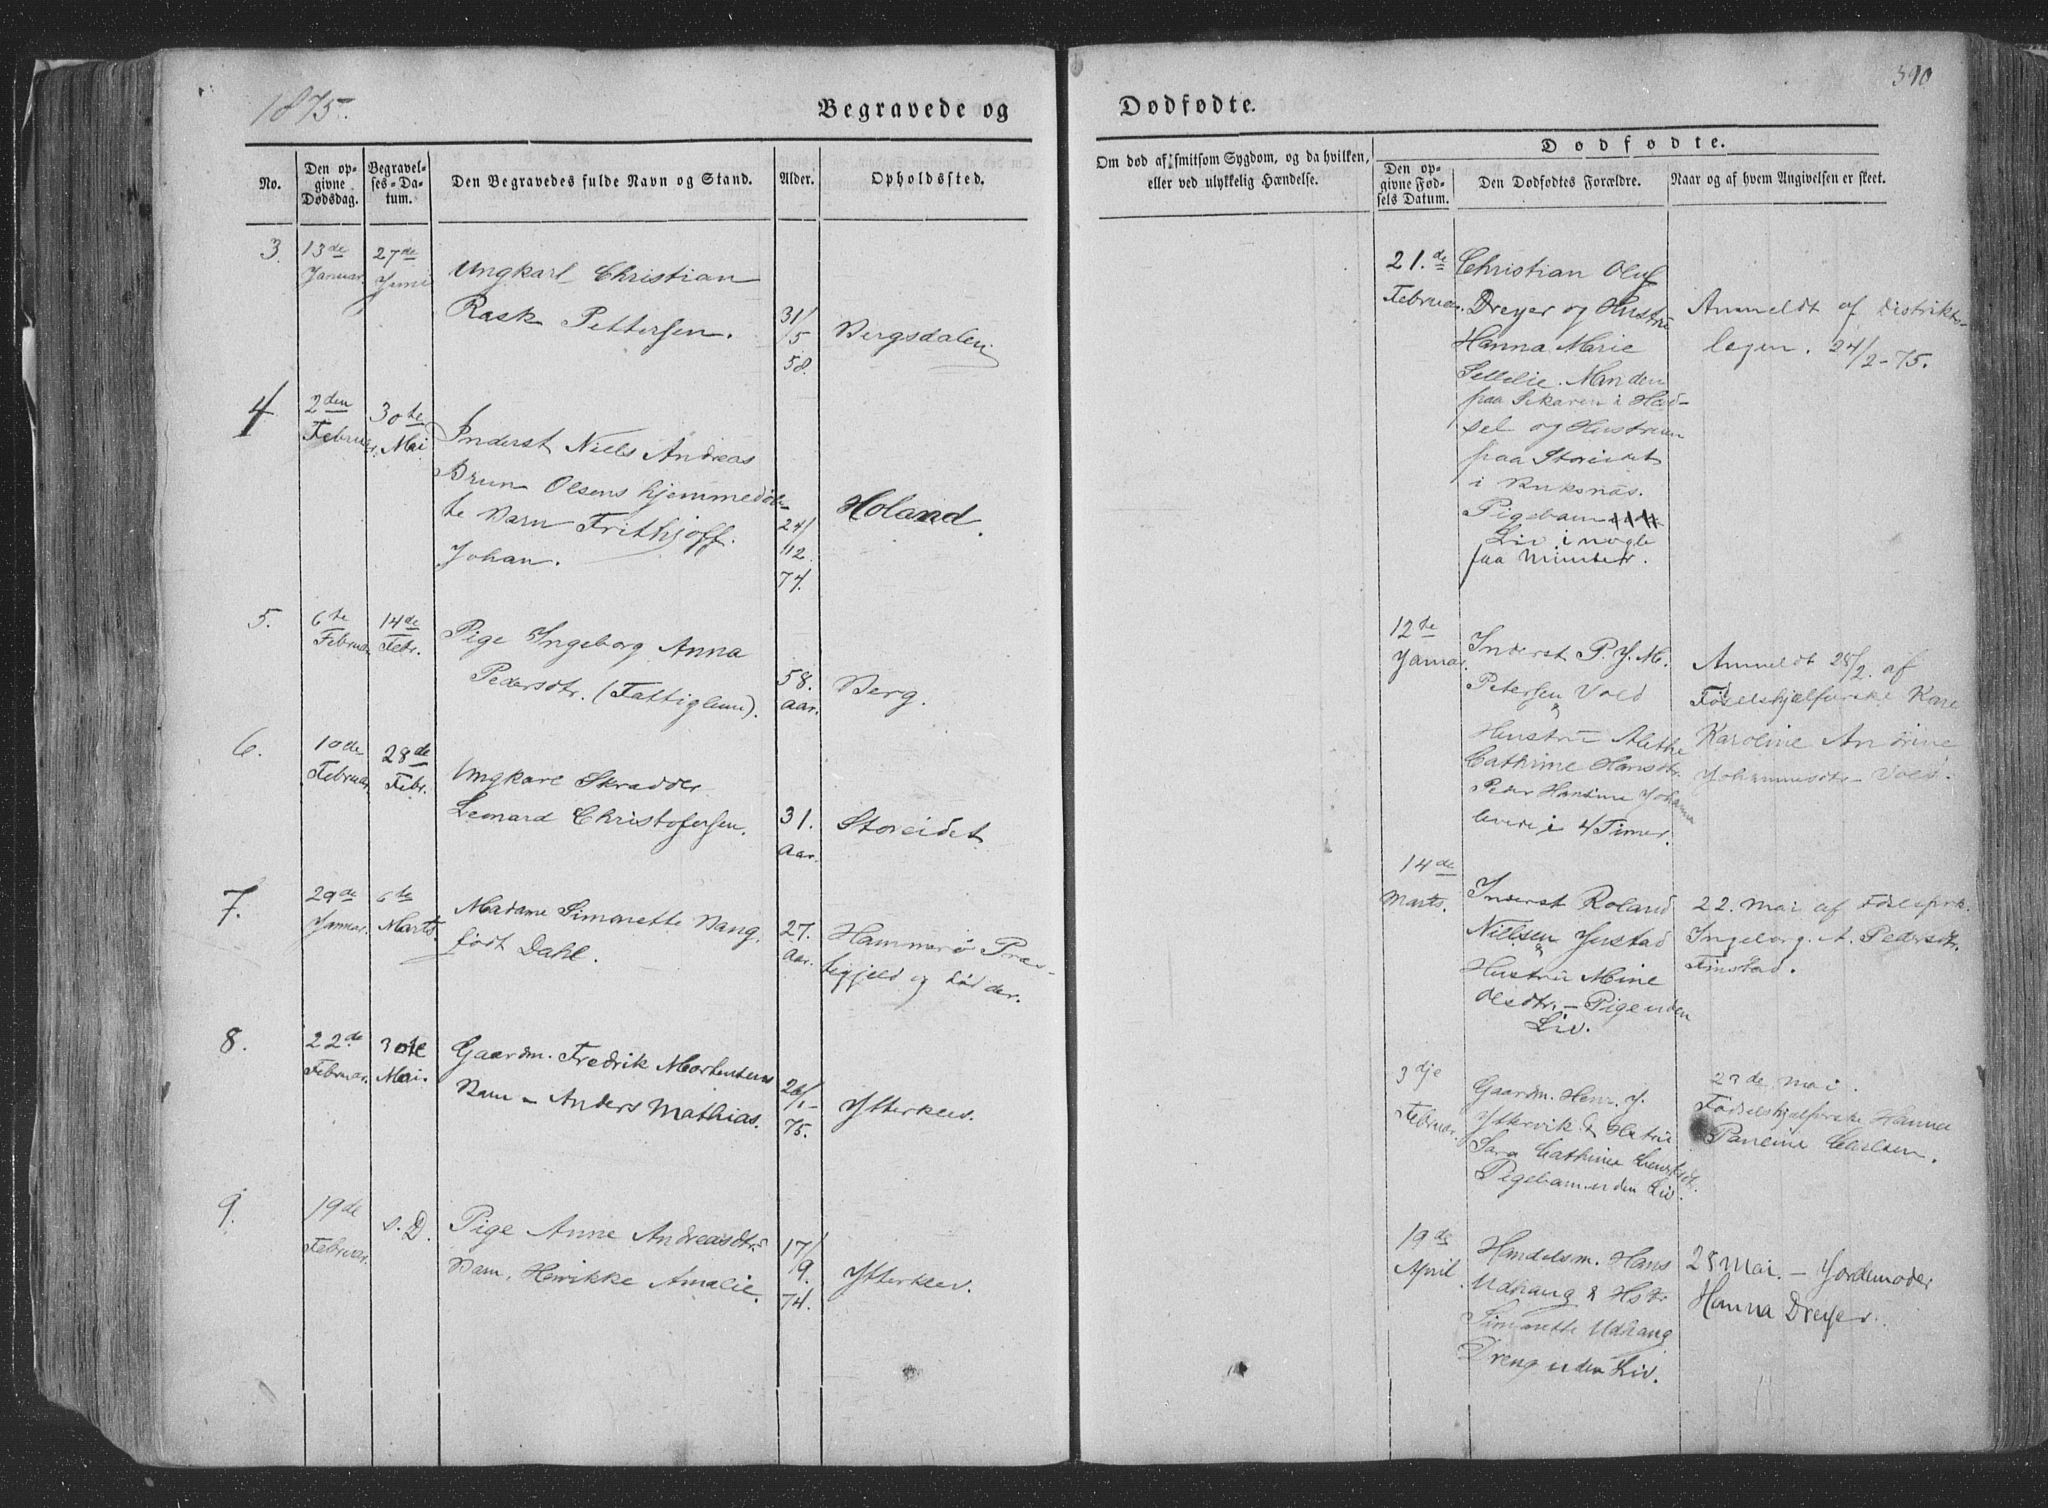 1875.
Begravede og
No.
Den opgivne Dødsdag.
Begravelses-Datum.
Den Begravedes fulde Navn og Stand.
Alder.
Opholdssted.
3.
13de
Januar.
27de
Juni
Ungkarl Christian
Rask Pettersen.
31/
5
58.
Bergsdalen
4
2den
Februar.
30te
Mai
Inderst Niels Andreas
Brun Olsens hjemmedøb-
te Barn Frithjoff
Johan.
24/
12
74.
Holand.
5.
6te
Februar
14de
Febr.
Pige Ingeborg Anna
Pedersdtr. (Fattiglem).
58.
aar.
Berg.
6.
10de
Februar
28de
Febr.
Ungkarl Skrædder
Leonard Christofersen.
31.
aar.
Storeidet
7.
29de
Januar.
6te
Marts.
Madame Simonette Bang
født Dahl.
27.
aar.
Hammerø Præs-
tegjeld og død der.
8.
22de
Februar.
30te
Mai.
Gaardm. Fredrik Mortensens
Barn - Anders Mathias.
26/
1-
75.
Ytterklev.
9.
19de
Februar.
s. D.
Pige Anne Andreasdtrs
Barn, Henrikke Amalie.
17/
9.
74.
Ytterklev.
390
Dødfødte.
Om død af smitsom Sygdom, og da hvilken,
eller ved ulykkelig Hændelse.
Dødfødte.
Den opgivne Fødsels Datum.
Den Dødfødtes Forældre.
Naar og af hvem Angivelsen er skeet.
21.de
Februar.
Christian Oluf
Dreyer og Hustru
Hanna Marie
Manden
paa i Had-
sel og Hustruen
paa Storeidet
i Buksnæs.
Pigebarn
Liv i nogle
faa Minuter.
Anmeldt af Distrikts-
lægen. 24/2-75.
12te
Januar.
Inderst P. J. M.
Petersen Vold
&
Hustru Alethe
Cathrine Hansdtr.
Peder Hansine Johanna
levede i 4 Timer.
Anmeldt 28/2. af
Fødselshjælperske Kone
Karoline Andrine
Johannesdtr Vold.
14de
Marts.
Inderst Roland
Nielsen Justad
&
Hustru Mine
Olsdtr. - Pige uden
Liv.
22. Mai af
Ingeborg A. Pedersdtr.
Finstad.
3dje
Februar.
Gaardm. Henr. J.
Yttervik & Hustru
Sara Cathrine
Pigebarn uden Liv.
23de Mai.
Fødselshjælperske Hanna
Pauline Carlsen.
19de
April.
Handelsm. Hans
Udhaug & Hstr
Simonette Udhaug
Dreng uden Liv.
28 Mai. - Jordemoder
Hanna Dreyer.